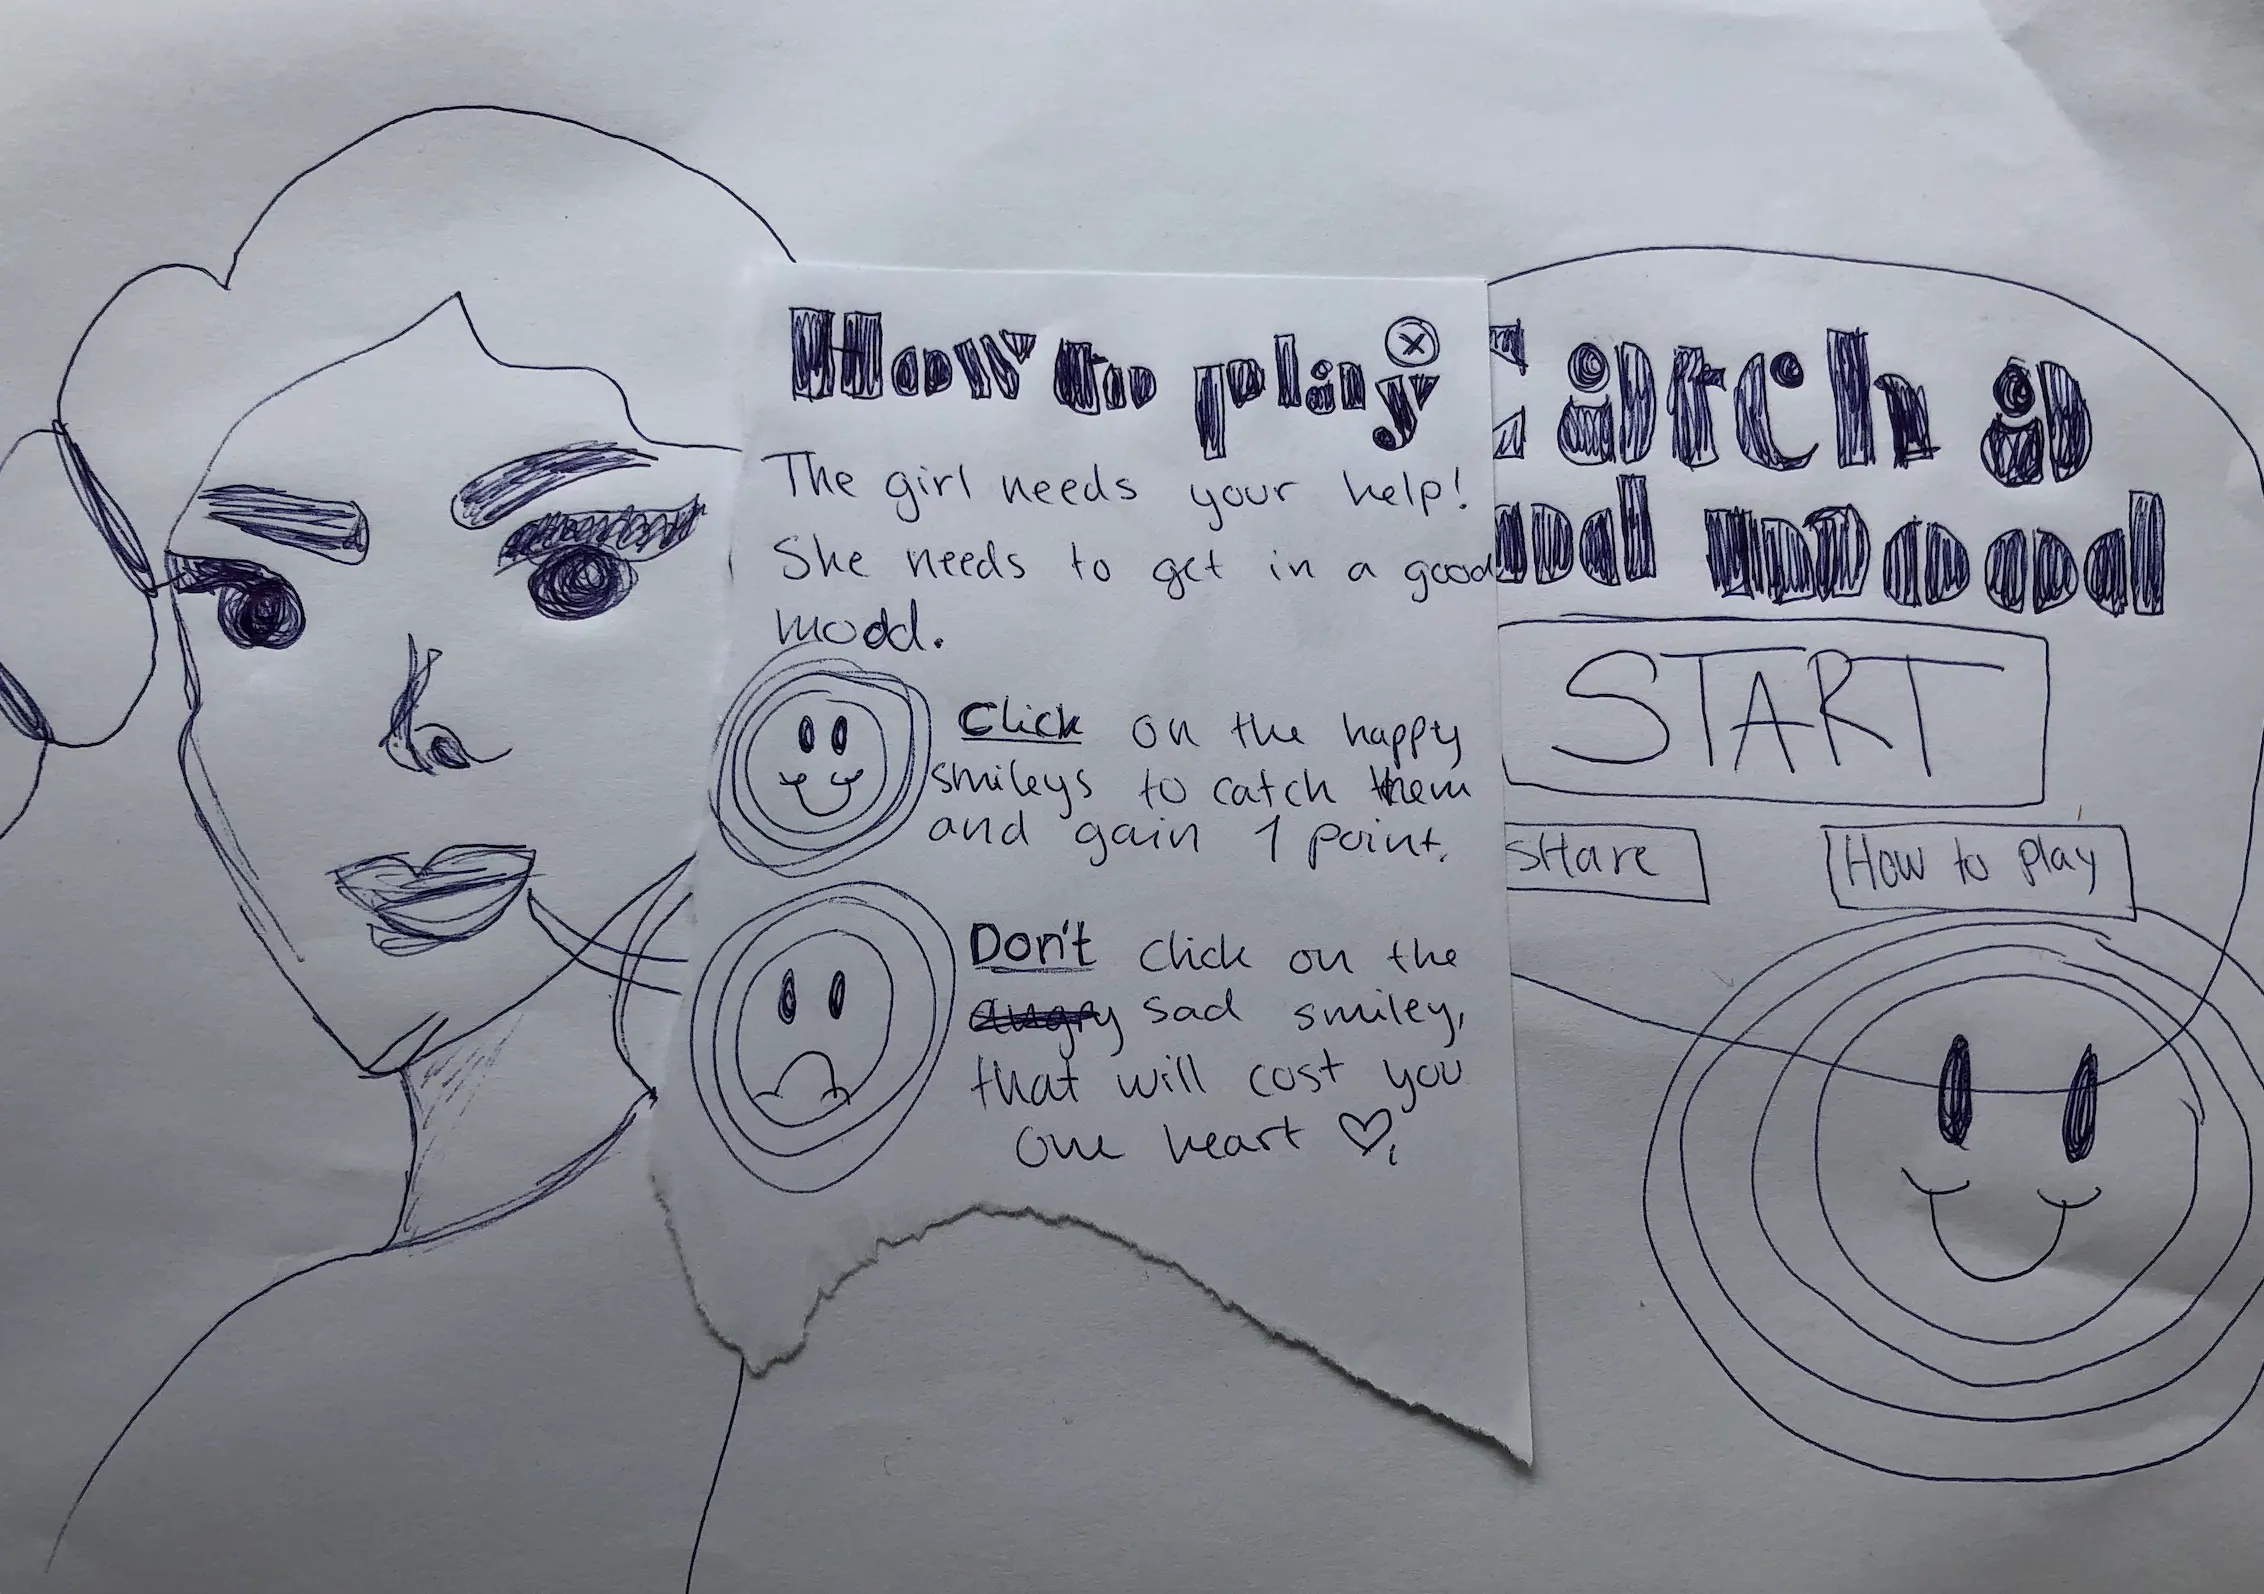 How to play
x
The girl needs your help!
She needs to get in a good
modd.
Click on the happy
smileys to catch them
and gain 1 point.
Don't click on the
angry sad smiley,
that will cost you
one heart ♡.
Catch a
mood
START
sHare
How to play